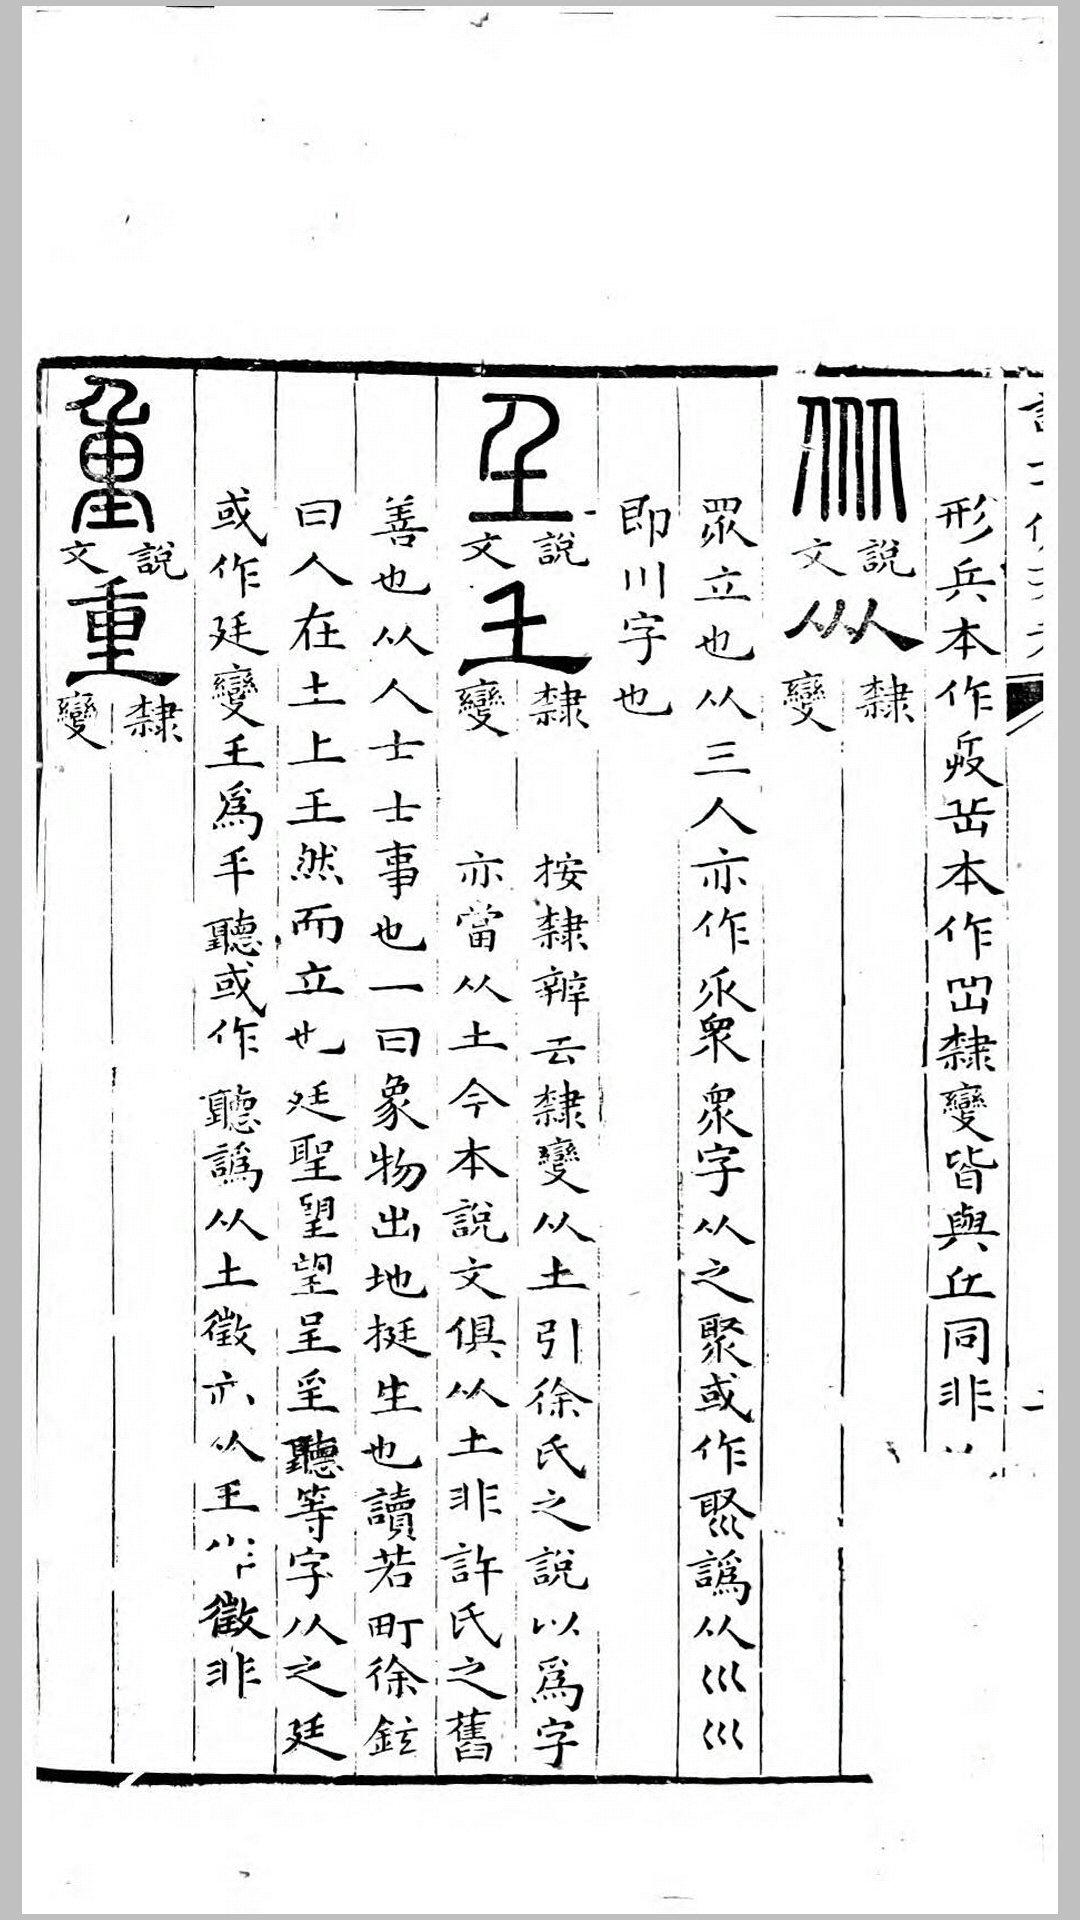 形兵本作㡿岳本作𡶇隸變皆與丘同非
㐺說文
㐺隸變
眾立也从三人亦作乑眾眾字从之聚或作䢈譌从巛巛
即川字也
𡈼說文
𡈼隸變
按隸辨云隸變从土引徐氏之說以爲字
亦當从土今本說文俱从土非許氏之舊
善也从人士士事也一曰象物出地挺生也讀若町徐鉉
曰人在土上𡈼然而立也廷聖朢望呈㸒聽等字从之廷
或作廷變𡈼爲手聽或作聽譌从土徵亦从𡈼作徵非
重說文
重隸變